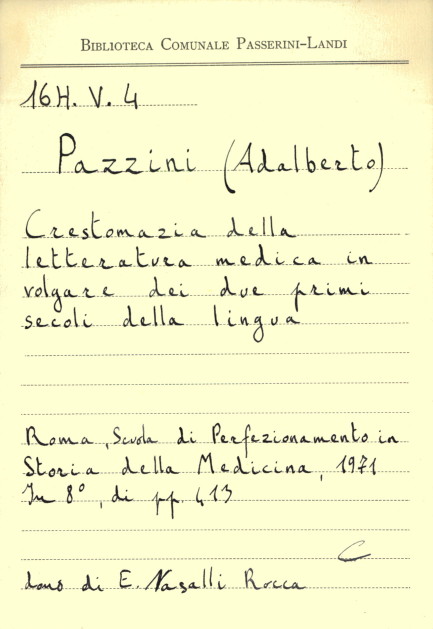 BIBLIOTECA COMUNALE PASSERINI-LANDI
16H. V. 4
Pazzini (Adalberto)
Crestomazia della
letteratura medica in
volgare dei due primi
secoli della lingua
Roma, Scuola di Perfezionamento in
Storia della Medicina, 1971
In 8°, di pp. 413
C
dono di E. Nasalli Rocca